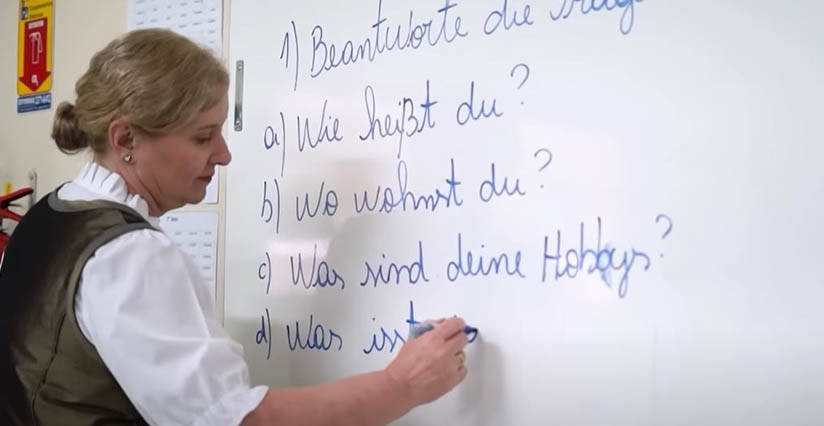 1) Beantworte die
a) Wie heißt du?
b) Wo wohnst du?
c) Was sind deine Hobbys?
d) Was ist